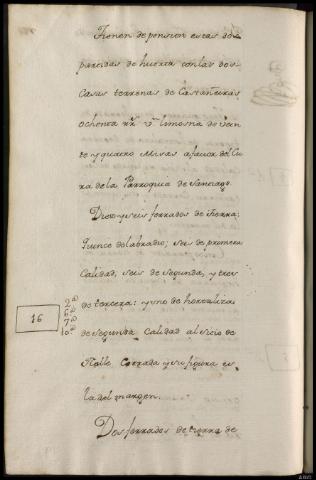 Tienen de pension estas dos
partidas de huerta con las dos
Casas terrenas de Castañeiras
ochenta rr.s vn limosna de vein
te y quatro Misas a favor del Cu
ra de la Parroquia de Santiago.
Diez y seis ferrados de tierra:
quince de labradio; seis de primera
Calidad, seis de segunda, y tres
2ª
de tercera: y uno de hortaliza
6ª
16
7ª
de segunda Calidad al sitio de
10ª
Cerrada y su figura es
la del margen.
Dos ferrados de tierra de